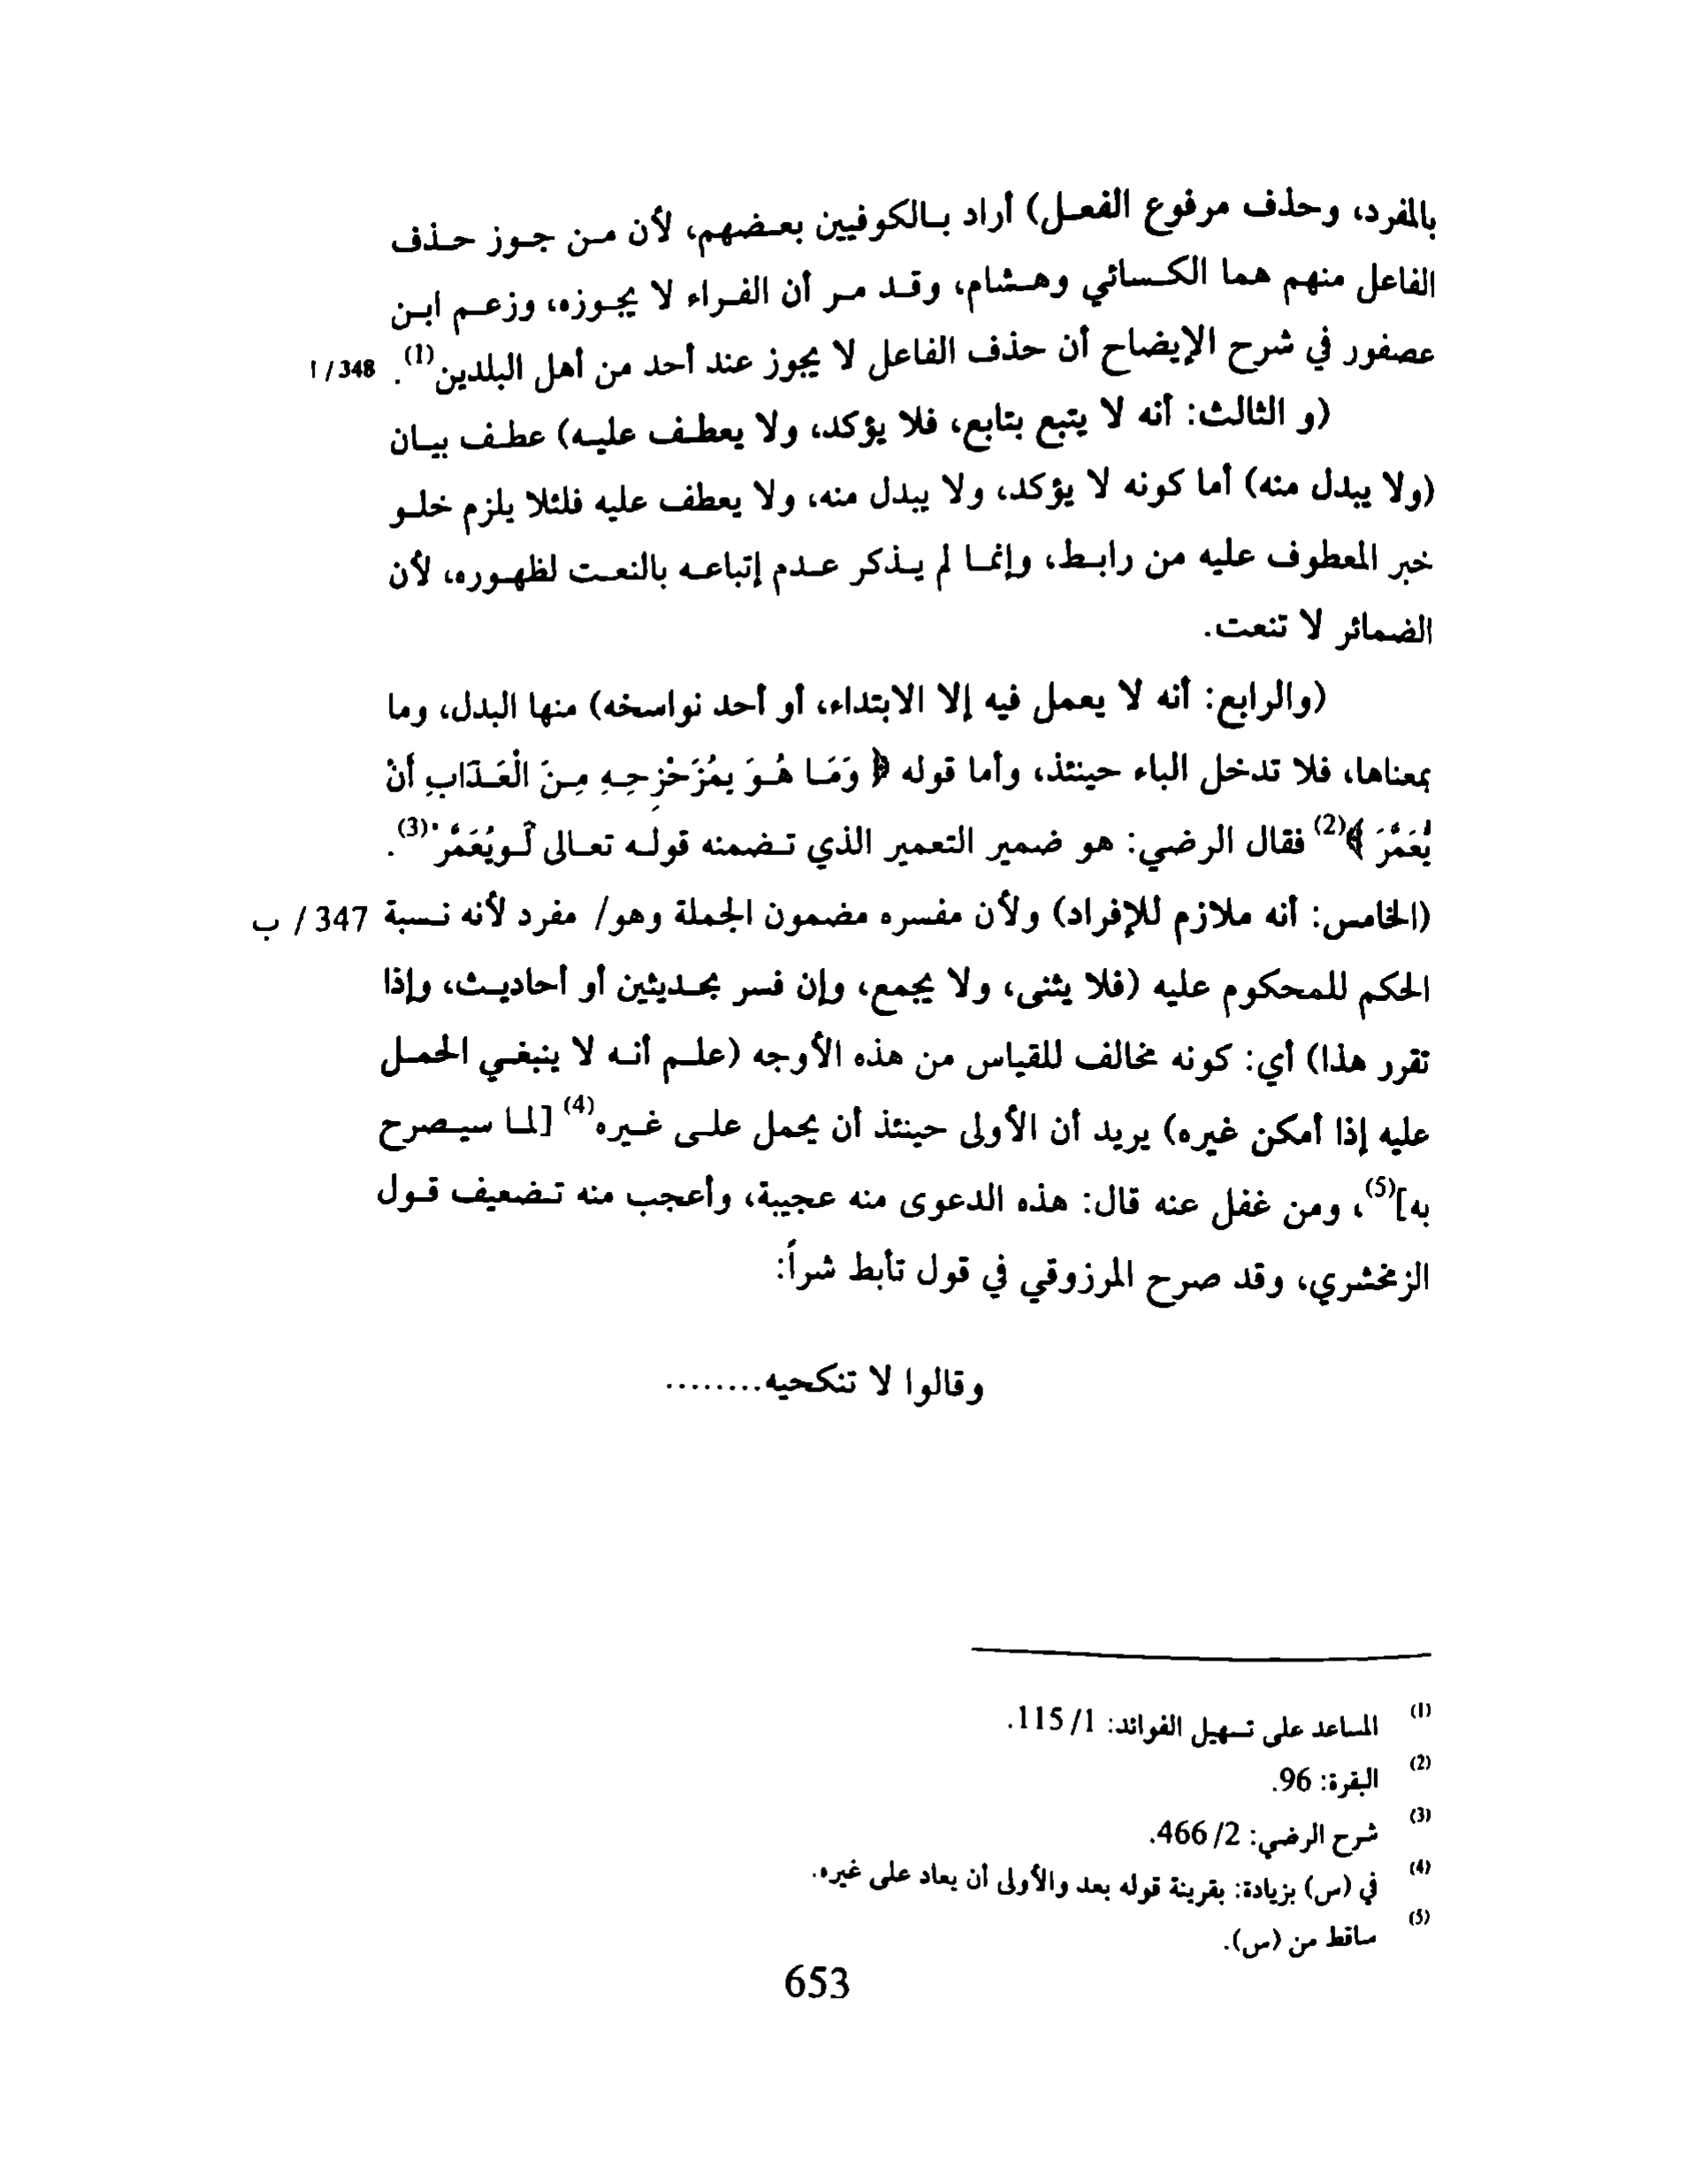 بالمفرد، وحذف مرفوع الفعل) أراد بالكوفيين بعضهم، لأن من جوز حذف
الفاعل منهم هما الكسائي وهشام، وقد مر أن الفراء لا يجوزه، وزعم ابن
عصفور في شرح الإيضاح أن حذف الفاعل لا يجوز عند أحد من أهل البلدين(1). 348 / أ
(و الثالث: أنه لا يتبع بتابع، فلا يؤكد، ولا يعطف عليه) عطف بيان
(ولا يبدل منه) أما كونه لا يؤكد، ولا يبدل منه، ولا يعطف عليه فلئلا يلزم خلو
خبر المعطوف عليه من رابط، وإنما لم يذكر عدم إتباعه بالنعت لظهوره، لأن
الضمائر لا تنعت.
(والرابع: أنه لا يعمل فيه إلا الابتداء، أو أحد نواسخه) منها البدل، وما
بمعناها، فلا تدخل الباء حينئذ، وأما قوله ﴿ وَمَا هُوَ بِمُزَحْزِحِهِ مِنَ الْعَذَابِ أَنْ
يُعَمَّرَ ﴾(2) فقال الرضي: هو ضمير التعمير الذي تضمنه قوله تعالى لَويُعَمَّر"(3).
(الخامس: أنه ملازم للإفراد) ولأن مفسره مضمون الجملة وهو/ مفرد لأنه نسبة 347 / ب
الحكم للمحكوم عليه (فلا يثنى، ولا يجمع، وإن فسر بحديثين أو أحاديث، وإذا
تقرر هذا) أي: كونه مخالف للقياس من هذه الأوجه (علم أنه لا ينبغي الحمل
عليه إذا أمكن غيره) يريد أن الأولى حينئذ أن يحمل على غيره(4) [لما سيصرح
به](5)، ومن غفل عنه قال: هذه الدعوى منه عجيبة، وأعجب منه تضعيف قول
الزمخشري، وقد صرح المرزوقي في قول تأبط شراً:
وقالوا لا تنكحيه........
(1) المساعد على تسهيل الفوائد: 1/ 115.
(2) البقرة: 96.
(3) شرح الرضي: 2/ 466.
(4) في (س) بزيادة: بقرينة قوله بعد والأولى أن يعاد على غيره.
(5) ساقط من (س).
653